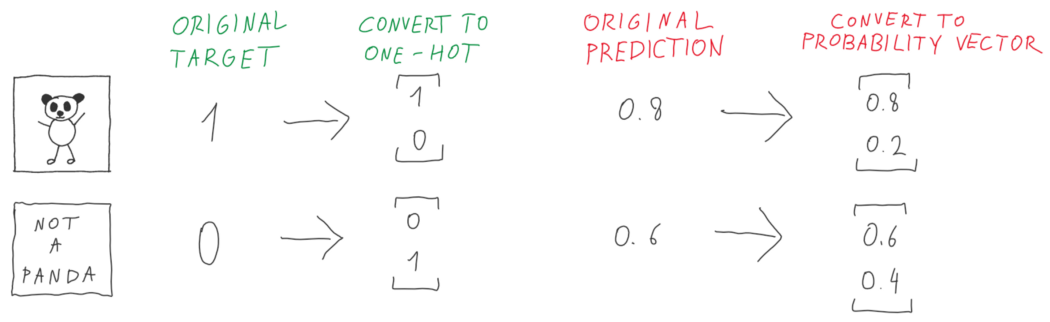 ORIGINAL TARGET
CONVERT TO ONE-HOT
ORIGINAL PREDICTION
CONVERT TO PROBABILITY VECTOR
1
1
0
0.8
0.8
0.2
NOT
A
PANDA
0
0
1
0.6
0.6
0.4